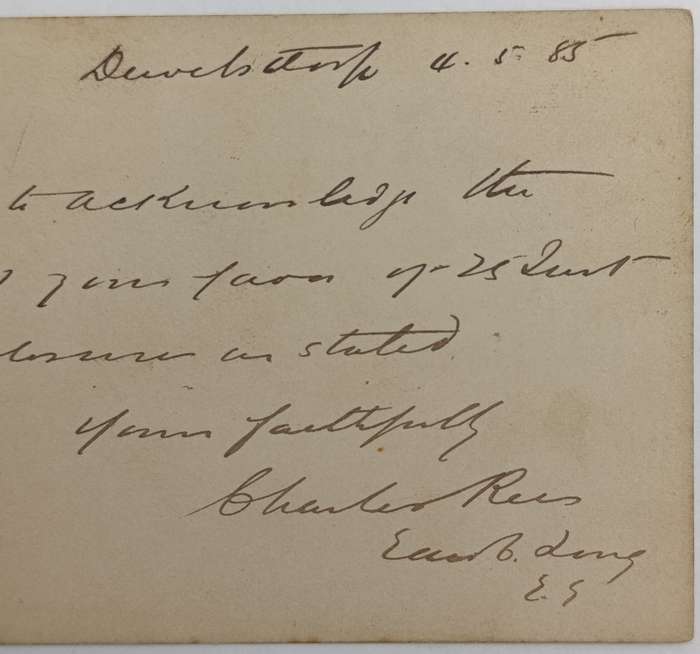 Dewetsdorp 4. 5. 85
to acknowledge the
your favor of 25 Inst
closure as stated
Yours faithfully
Charles Rees